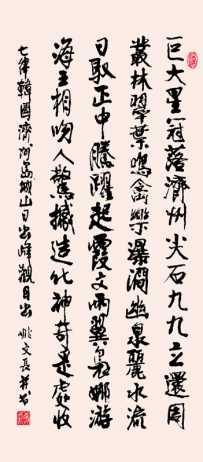 巨大星冠落濟州尖石九九立還周
叢林翠葉鳴禽樂瀑澗幽泉麗水流
日馭正中騰躍起霞文兩翼裊娜游
海王相吻人驚撼造化神奇是處收
七律韓國濟州島城山日出峰觀日出 姚文長并书